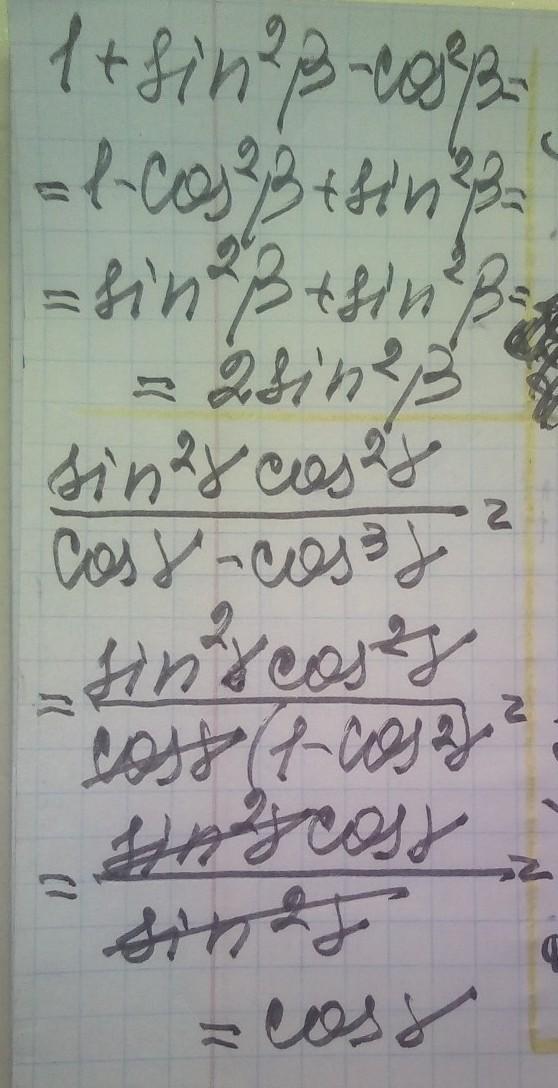 1 + sin²β - cos²β =
= 1 - cos²β + sin²β =
= sin²β + sin²β =
= 2sin²β
sin²γ cos²γ
cosγ - cos³γ =
= sin²γ cos²γ
cosγ (1 - cos²γ =
= sin²γ cosγ
sin²γ =
= cosγ